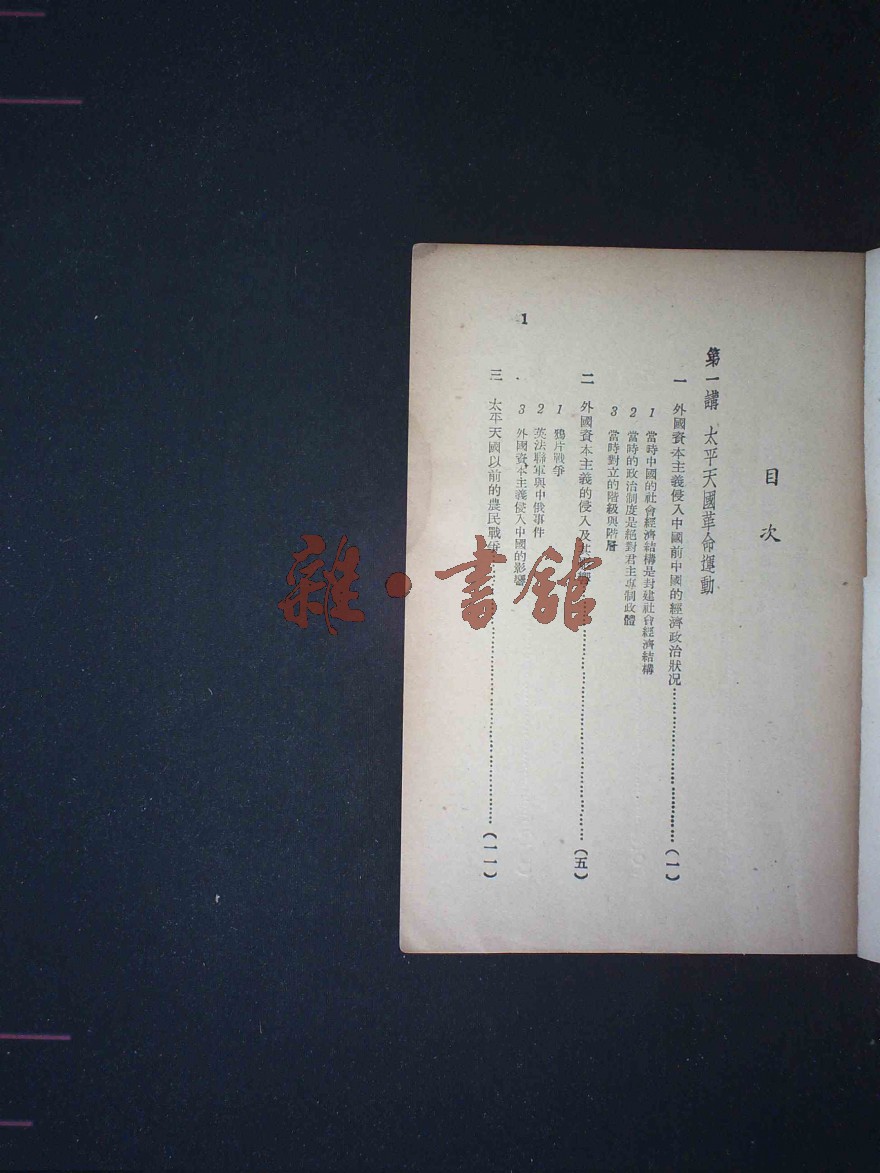 目次
第一講 太平天國革命運動
一 外國資本主義侵入中國前中國的經濟政治狀况……………………（一）
1 當時中國的社會經濟結構是封建社會經濟結構
2 當時的政治制度是絕對君主專制政體
3 當時對立的階級與階層
二 外國資本主義的侵入及……………………（五）
1 鴉片戰爭
2 英法聯軍與中俄事件
3 外國資本主義侵入中國的影響
三 太平天國以前的農民戰爭……………………（一一）
1
雜·書館